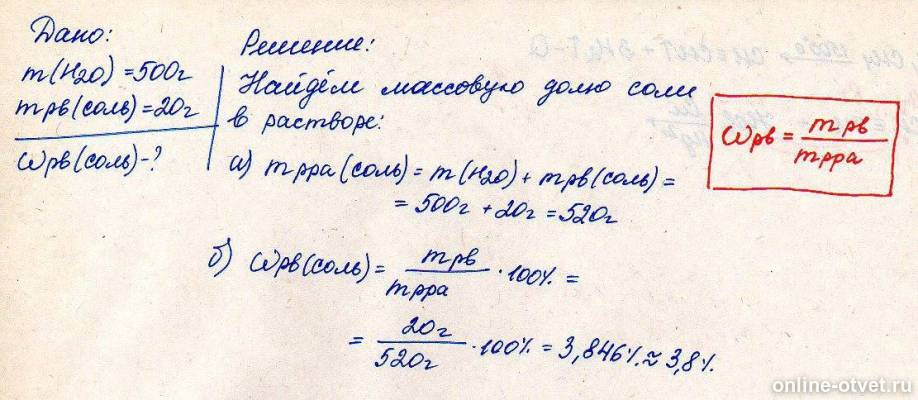 Дано:
m(H2O) = 500г
mрв(соль) = 20г
ωрв(соль) - ?
Решение:
Найдём массовую долю соли
в растворе:
а) mрра(соль) = m(H2O) + mрв(соль) =
= 500г + 20г = 520г
б) ωрв(соль) = mрв/mрра · 100% =
= 20г/520г · 100% = 3,846% ≈ 3,8%.
ωрв = mрв/mрра
online-otvet.ru